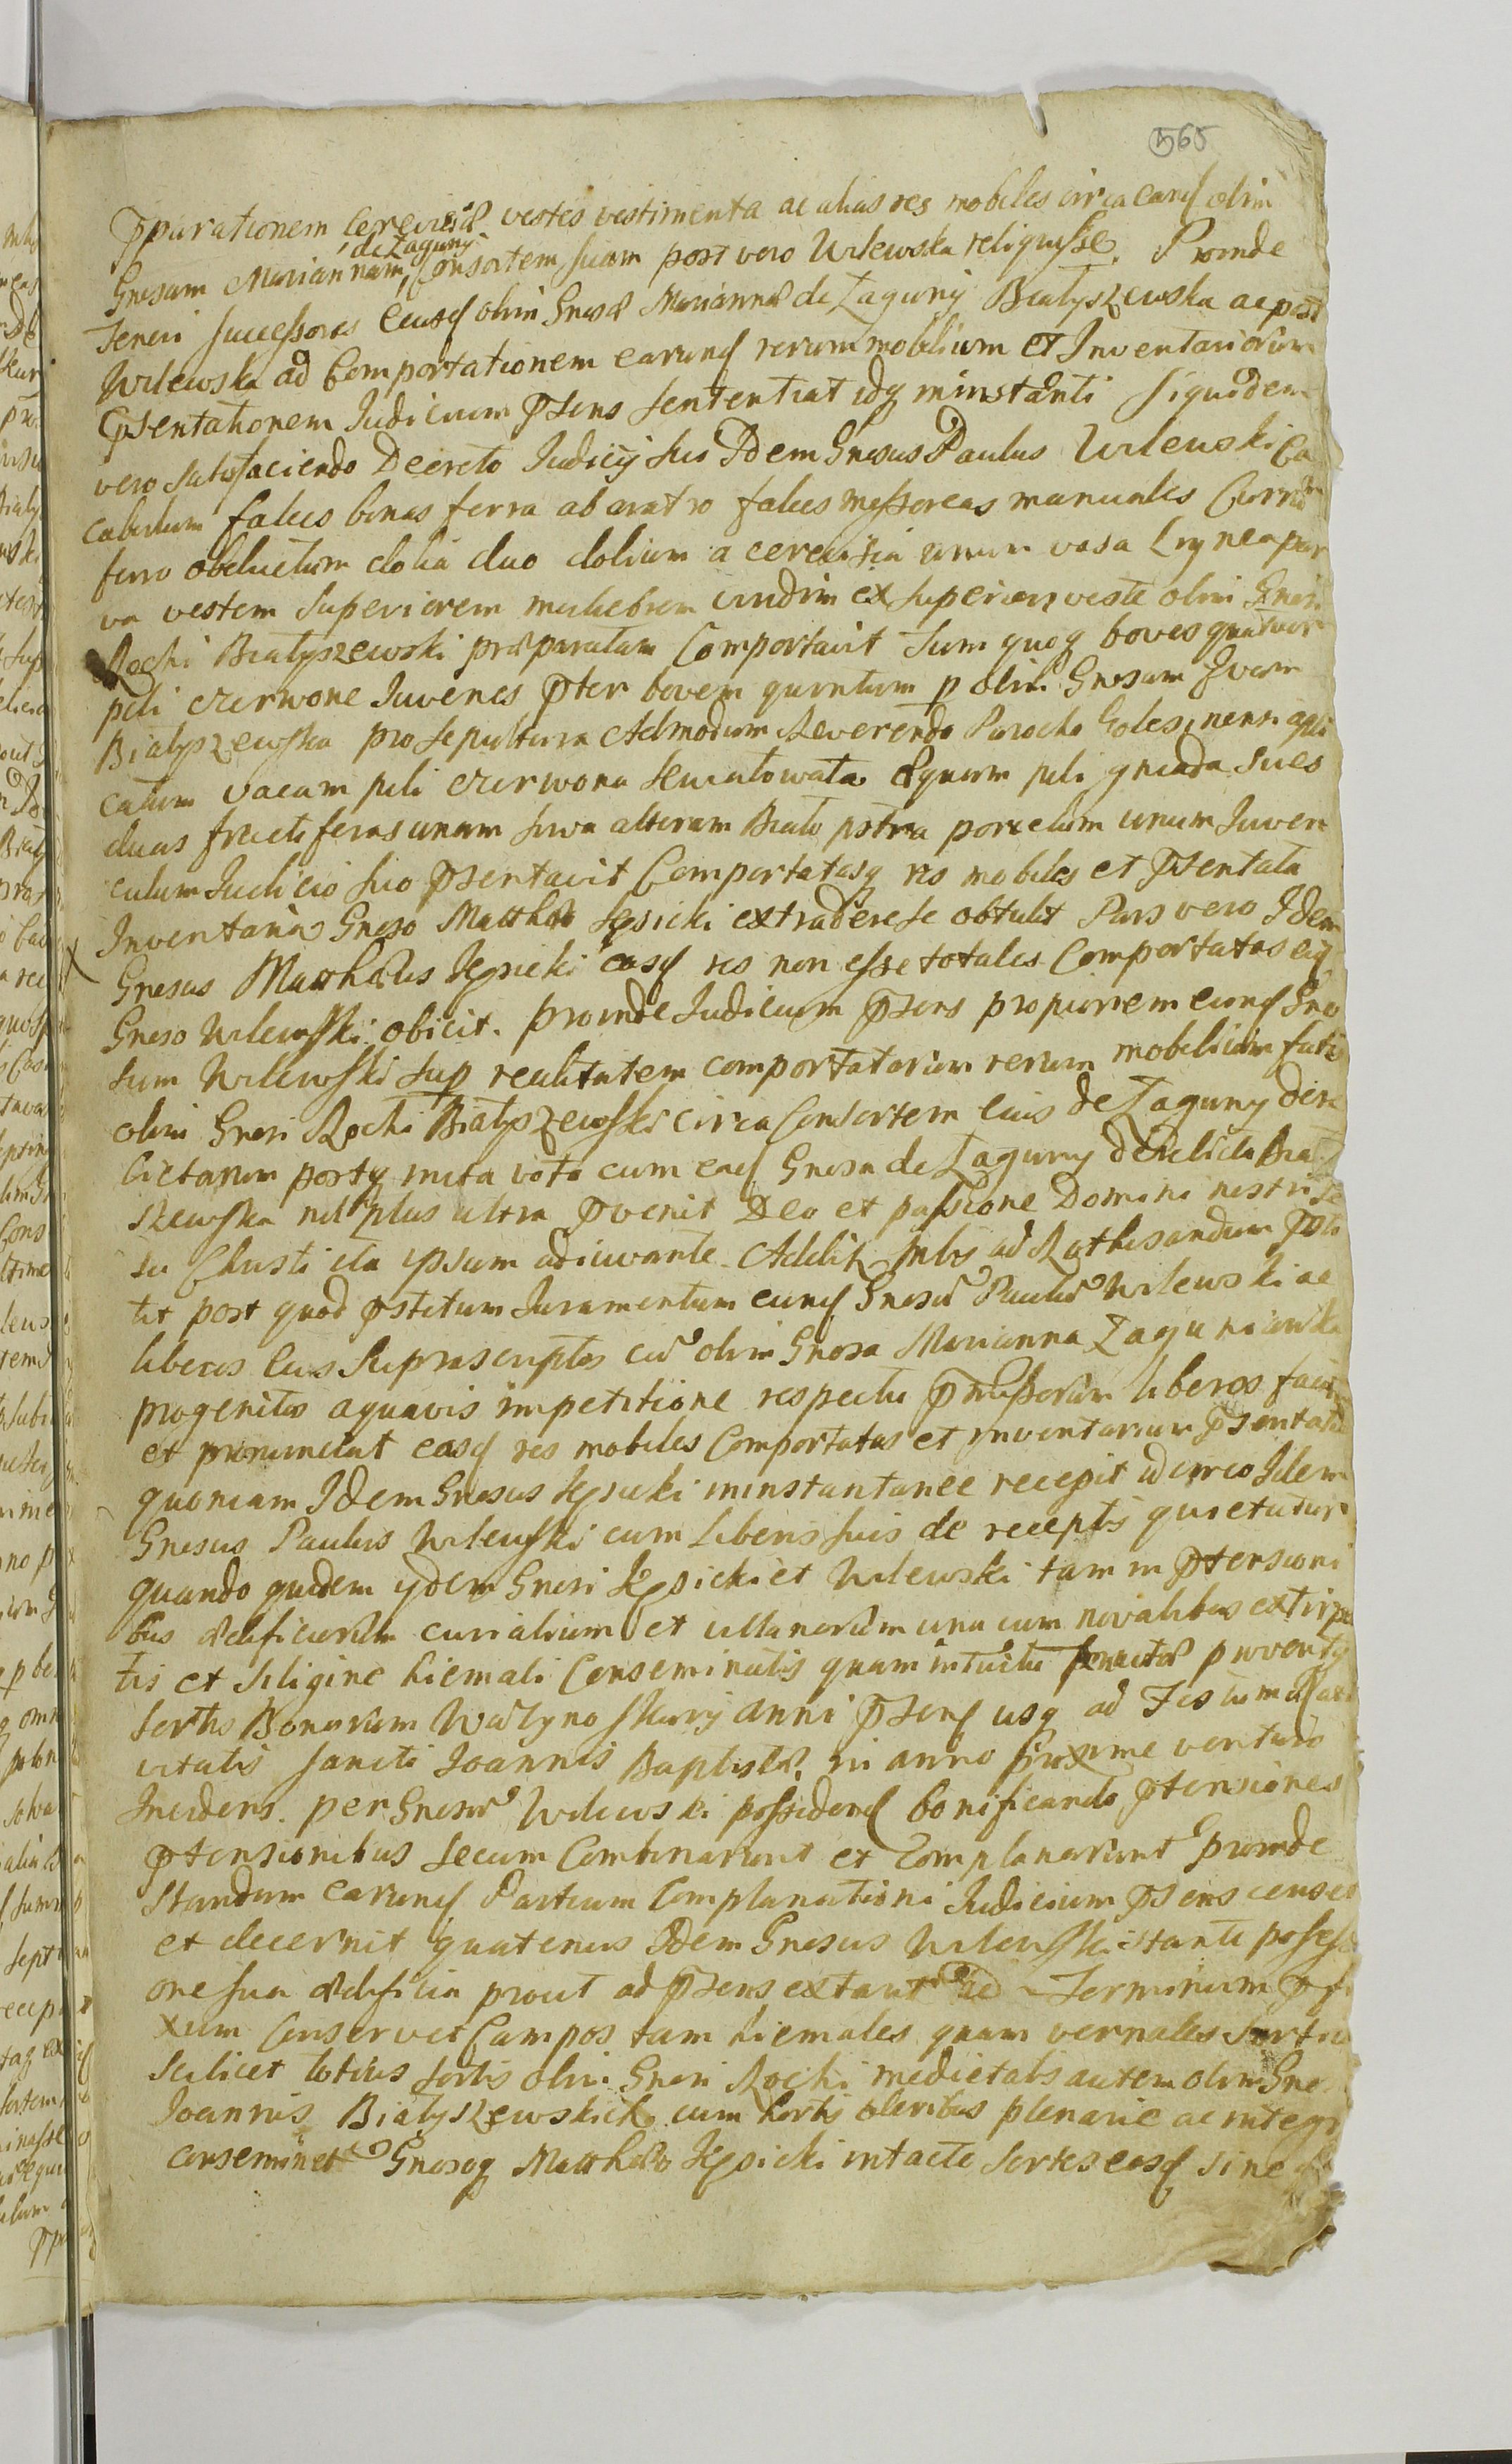 565
Pparationem Cerevisiæ vestes vestimenta ac alias res mobiles circa eand olim
de Łaguny
Gnosam Mariannam, Consortem suam post vero Wilewska reliquisse. Proinde
teneri successores eiusd olim Gnosæ Mariannæ de Łaguny Białyszewska ac post
Wilewska ad Comportationem earund rerum mobilium et Inventariorum
Psentationem Judicium Psens sententiat idq ininstanti siquidem
vero satisfaciendo Decreto Judicij sui Idem Gnosus Paulus Wilewski Ca
cabulum falces binas ferra ab aratro falces messoreas manuales Currum
ferro obductum dolia duo dolium a cerevisia unum vasa Lignea par
va vestem superiorem muliebrem ex superiori veste olim Gnosi
Rochi Białyszewski præparatam Comportavit tum quoq boves quatuor
pili czerwone Iuvenes Pter bovem quintum p olim Gnosum
Białyszewska pro sepultura Admodum Reverendo Parocho appli
catum vacam pili czerwona Equam pili gniada sues
duas fructiferas unam siwa alteram Biało pstra porcelum unum Iuven
culum Judicio suo Psentavit Comportatasq res mobiles et Psentata
Inventaria Gnoso Matthæo extradere se obtulit Pars vero Idem
Gnosus Matthæus easd res non esse totales Comportatas eid
Gnoso Wilewski obicit. proinde Judicium Psens propiorem eund Gno
sum Wilewski sup realitatem comportatarum rerum mobilium
olim Gnosi Rochi Białyszewski circa Consortem eius de Łaguny dere
lictarum postq inita vota cum ead Gnosa de Łaguny derelicta Biały
szewska nil plus ultra Pvenit Deo et passione Domini nostri Je
su Christi ita ipsum adiuvante ad Rothisandum Psti
tit post quod Pstitum Iuramentum eund Gnosũ Paulũ Wilewski ac
liberos eius suprascriptos cũ olim Gnosa Marianna Łaguniewska
progenitos a quavis impetitione respectu Pmissorum liberos facit
et pronunciat easd res mobiles Comportatas et Inventarium Psentatũ
quoniam Idem Gnosus ininstantanee recepit idcirco Idem
Gnosus Paulus Wilewski cum liberis suis de receptis quietatur
quando quidem ydem Gnosi et Wilewski tam in Ptensioni
bus ædificiorum curialium et villanorum una cum novalibus extirpa
tis et siligine hiemali Conseminatis quam intuitu proventq
sortis Bonorum anni Psens usq ad Festum Nati
vitatis sancti Joannis Baptistæ in anno proxime venturo
Incidens. per Gnosũ Wilewski possidend bonificando Ptensiones
Ptensionibus secum Combinarunt et Complanarunt proinde
standum earund Partium Complanationi Judicium Psens censet
et decernit quatenus Idem Gnosus Wilewski stante possessi
one sua ædificia prout ad Psens extant ad Terminum Pfi
xum Conservet Campos tam hiemales quam vernales
scilicet totius sortis olim Gnosi Rochi medietatis autem olim Gno
Joannis Białyszewskich cum hortis oleribus plenarie ac integr
conseminet Gnosoq Matthæo intacte sortes easd sine